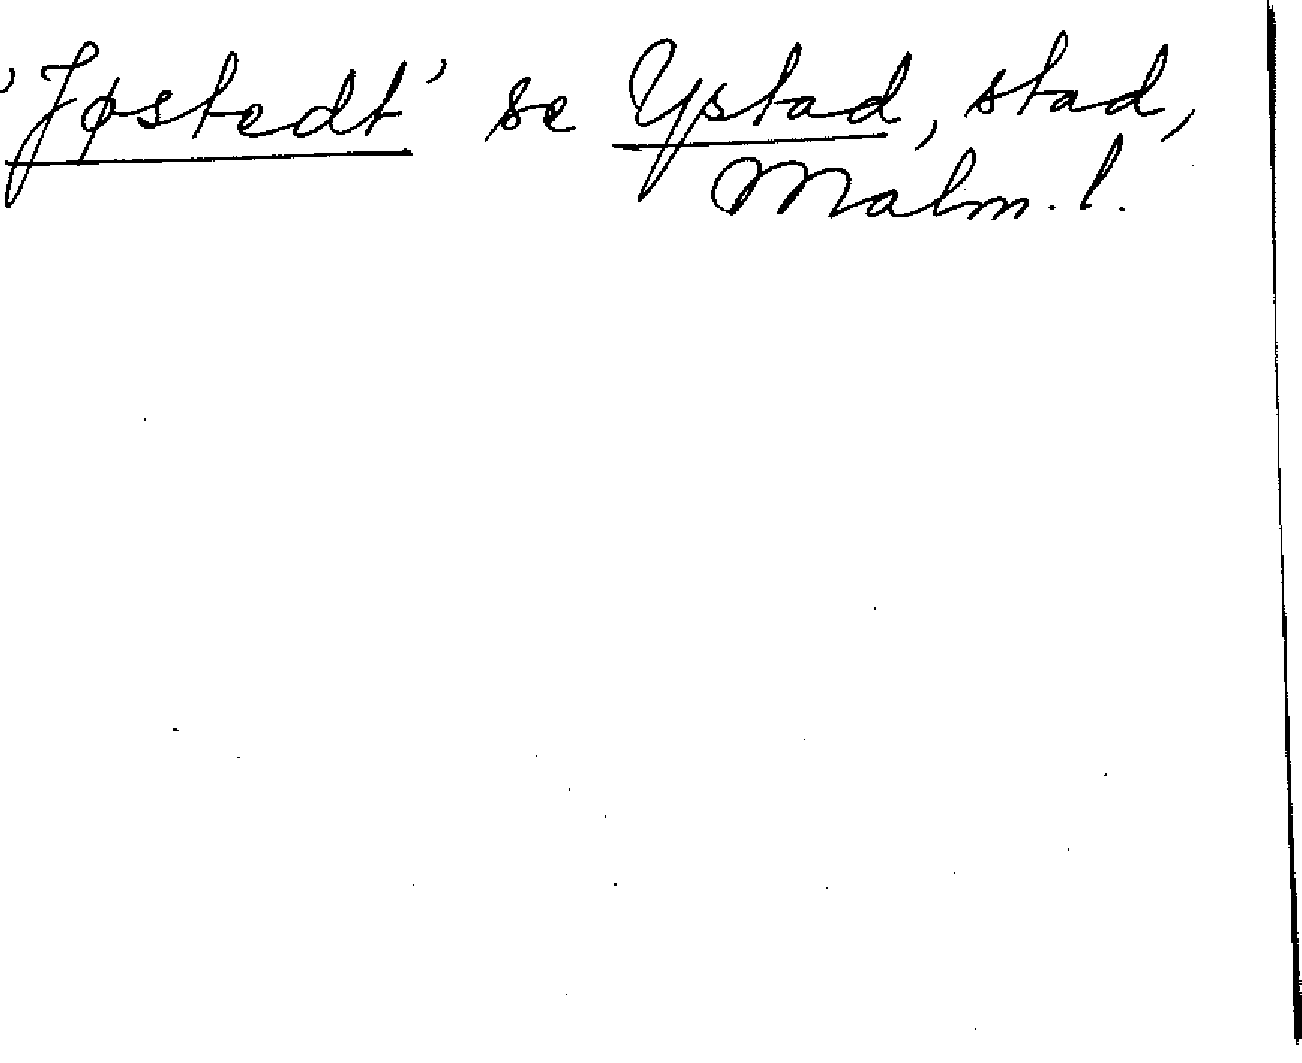 'Jøstedt' se Ystad, stad,
Malm. l.